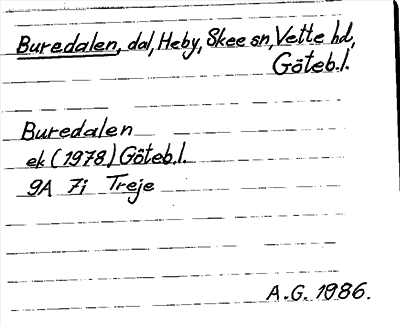 Buredalen, dal, Heby, Skee sn, Vette hd,
Göteb.l.
Buredalen
ek (1978) Göteb.l.
9A 7i Treje
A.G. 1986.